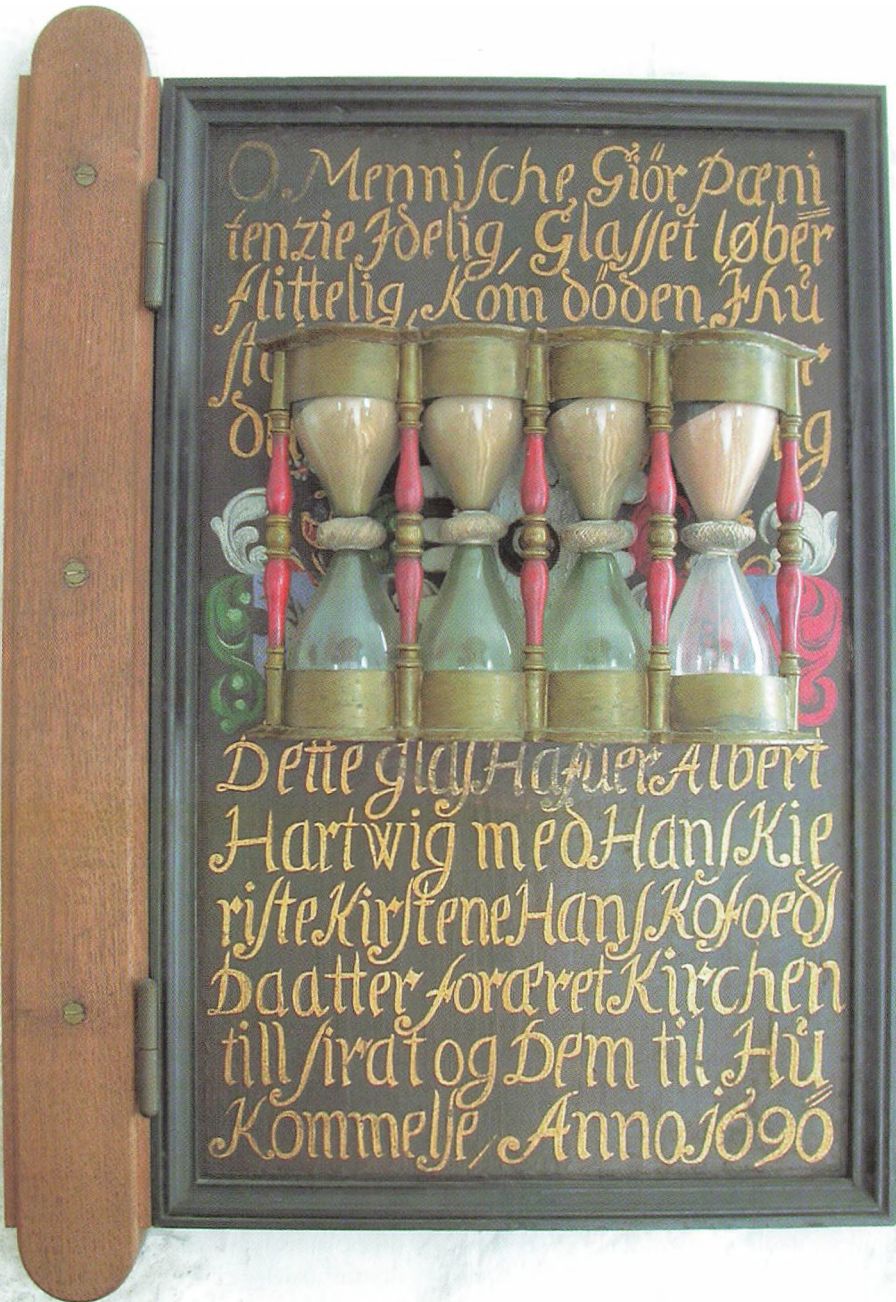 O. Menniſche, Giör Pæni
tenzie Idelig, Glaſſet løber
flittelig, Kom döden Ihŭ
Dette glaſ Hafuer Albert
Hartwig med Hanſ Kie
riſte Kirſtene Hanſ Kofoedſ
Daatter foræret Kirchen
till ſirat og Dem til Hŭ
Kommelſe, Anno 1690